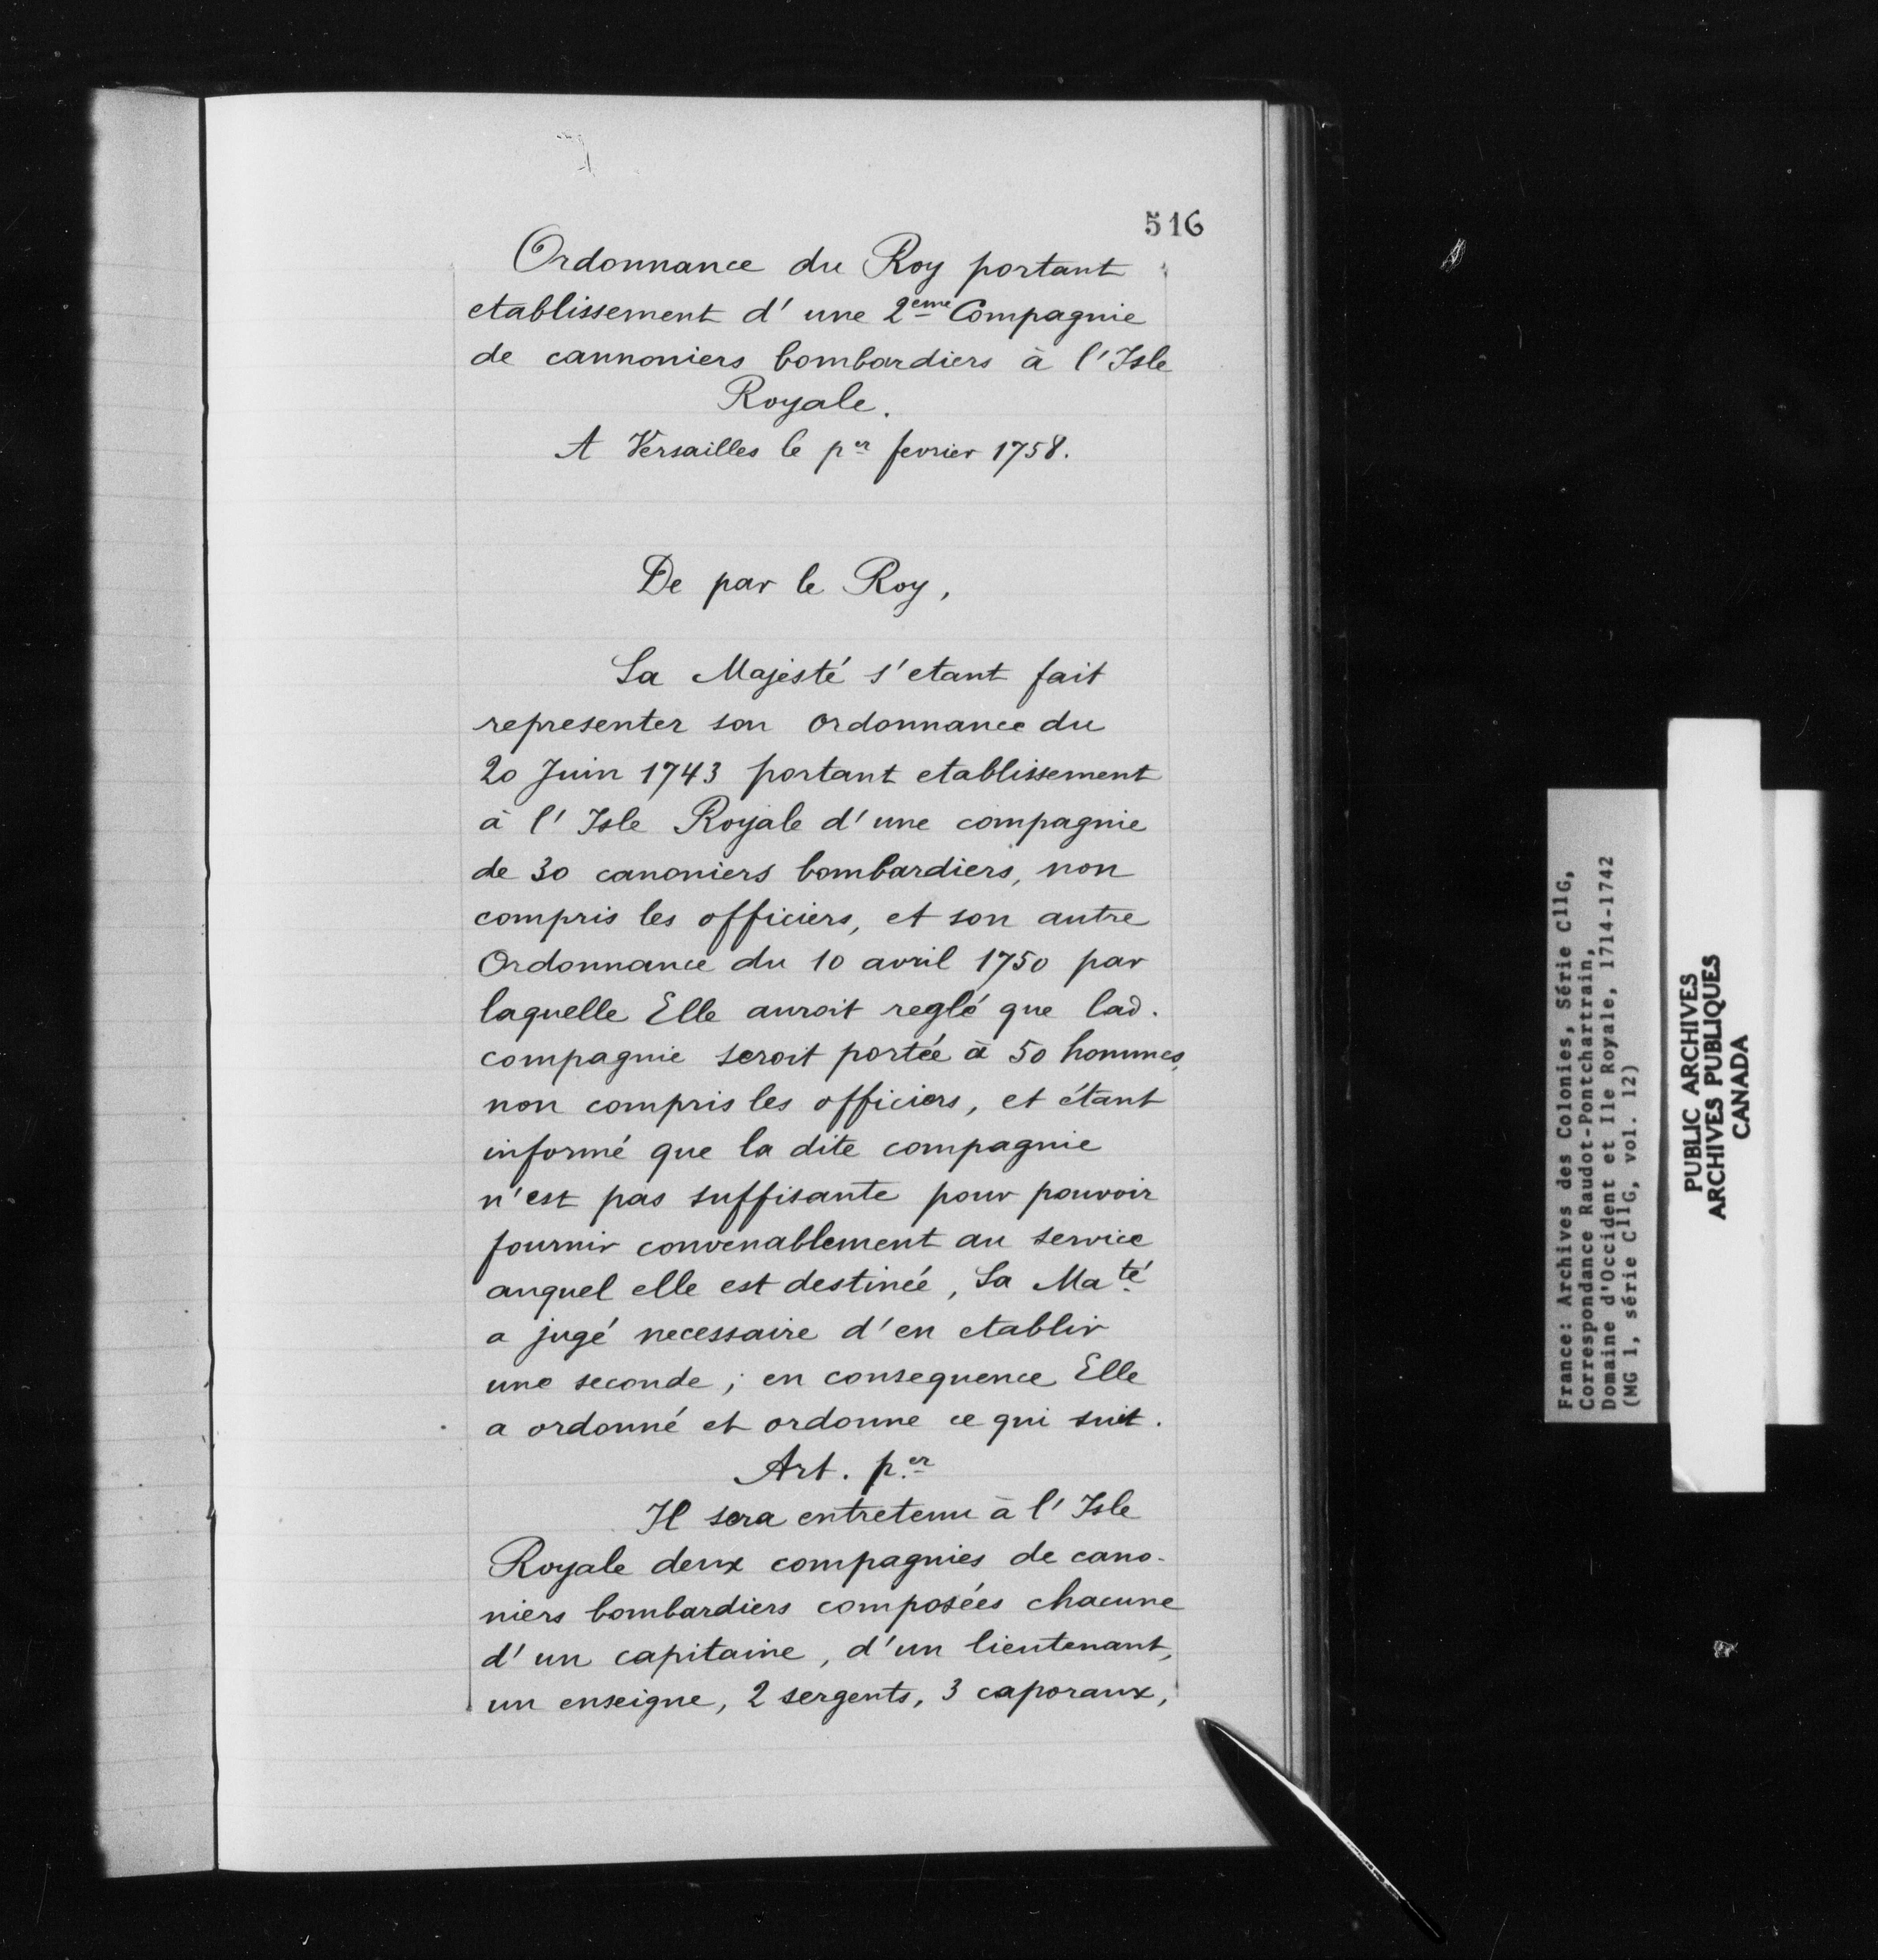 516
Ordonnance du Roy portant
etablissement d' une 2eme Compagnie
de cannoniers bombardiers à l'Isle
Royale.
A Versailles le per fevrier 1758.
De par le Roy,
Sa Majesté s'etant fait
representer son ordonnance du
20 Juin 1743 portant etablissement
à l' Isle Royale d' une compagnie
de 30 canoniers bombardiers, non
compris les officiers, et son autre
Ordonnance du 10 avril 1750 par
laquelle Elle auroit reglé que lad.
compagnie seroit portée à 50 hommes,
non compris les officiers, et étant
informé que la dite compagnie
n'est pas suffisante pour pouvoir
fournir convenablement au service
auquel elle est destinée, Sa Maté
a jugé necessaire d'en etablir
une seconde; en consequence Elle
a ordonné et ordonne ce qui suit.
Art. per
Il sera entretenu à l' Isle
Royale deux compagnies de cano-
niers bombardiers composées chacune
d' un capitaine, d'un lieutenant,
un enseigne, 2 sergents, 3 caporaux,
France: Archives des Colonies, Série C11G,
Correspondance Raudot-Pontchartrain,
Domaine d'Occident et Ile Royale, 1714-1742
(MG 1, série C11G, vol. 12)
PUBLIC ARCHIVES
ARCHIVES PUBLIQUES
CANADA